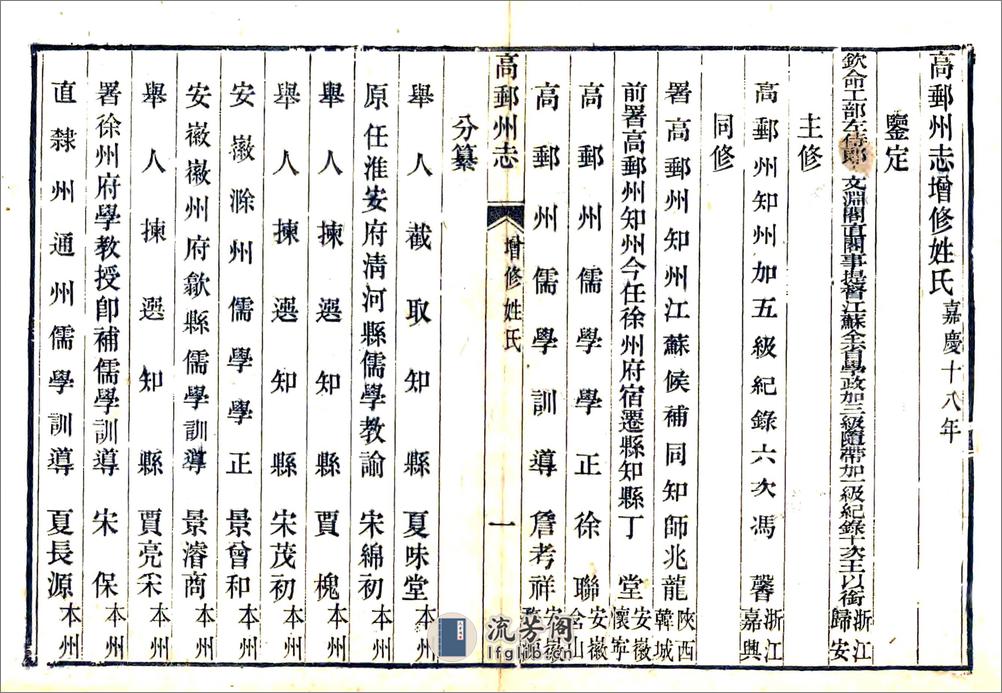 高郵州志增修姓氏 嘉慶十八年
鑒定
欽命工部左侍郎 文淵閣直閣事提督江蘇全省學政加三級隨帶加一級紀錄十次王以銜 浙江歸安
主修
高郵州知州加五級紀錄六次馮馨 浙江嘉興
同修
署高郵州知州江蘇候補同知師兆龍 陝西韓城
前署高郵州知州今任徐州府宿遷縣知縣丁堂 安徽懷寧
高郵州儒學學正徐聯 安徽含山
高郵州儒學訓導詹考祥 安徽
高郵州志 增修姓氏 一
分纂
舉人截取知縣夏味堂 本州
原任淮安府清河縣儒學教諭宋綿初 本州
舉人揀選知縣賈槐 本州
舉人揀選知縣宋茂初 本州
安徽滁州儒學學正景曾和 本州
安徽徽州府歙縣儒學訓導景濬商 本州
舉人揀選知縣賈亮采 本州
署徐州府學教授卽補儒學訓導宋保 本州
直隸州通州儒學訓導夏長源 本州
流芳阁
lfglib.cn